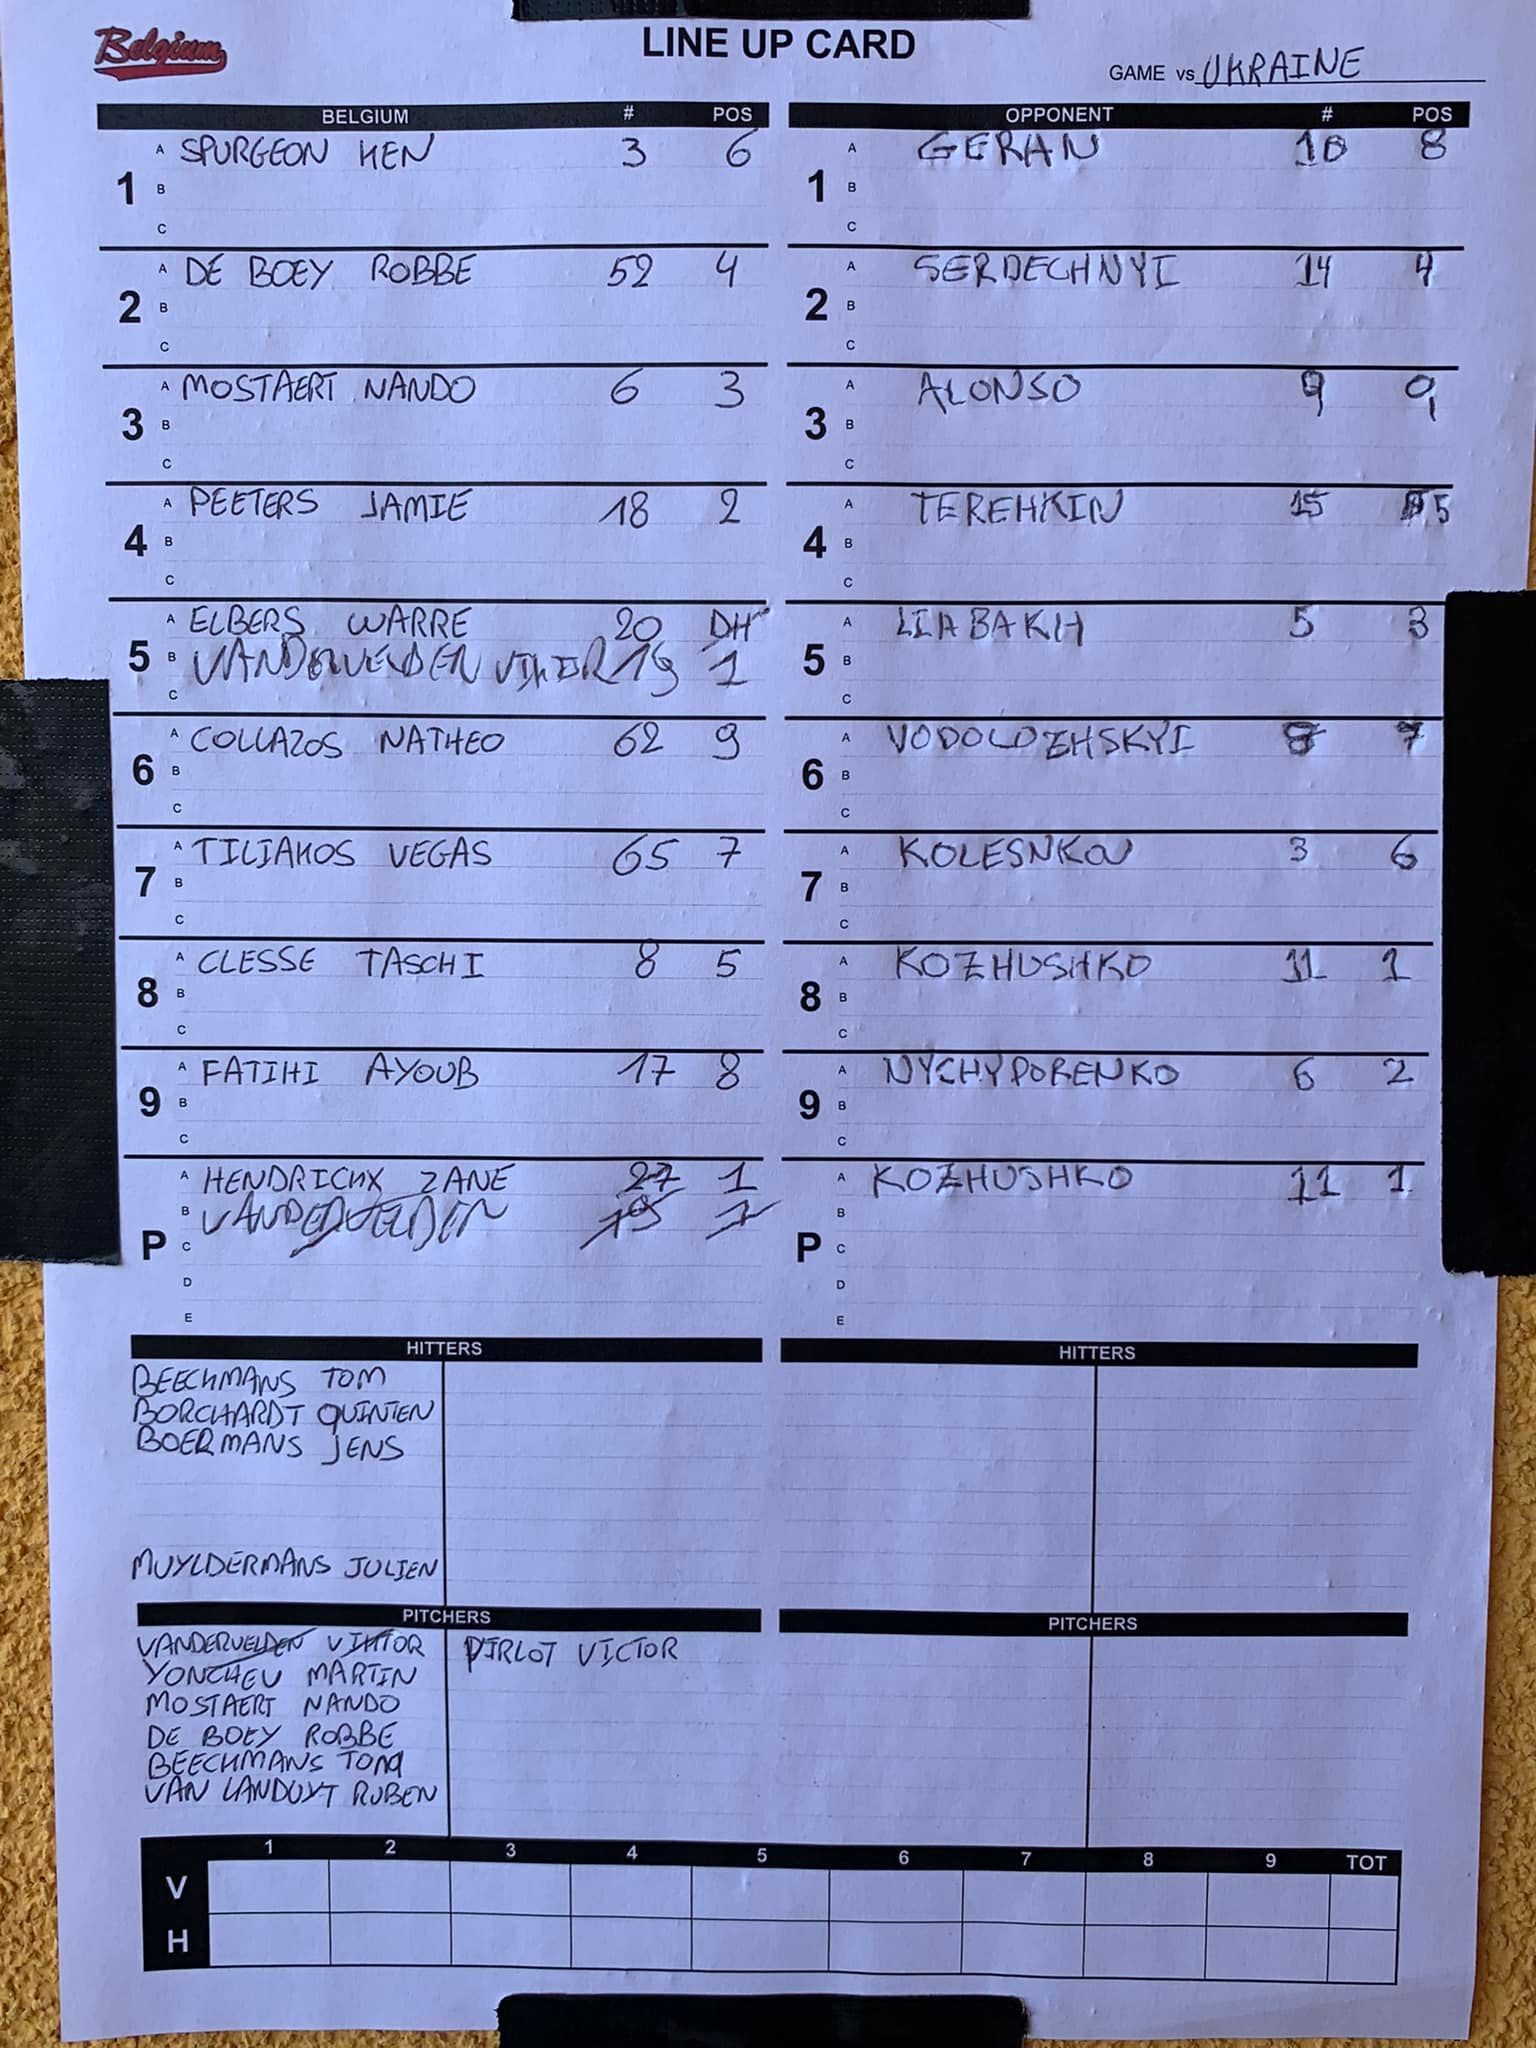 Belgium
LINE UP CARD
GAME vs UKRAINE
BELGIUM # POS
OPPONENT # POS
1 A SPURGEON KEN 3 6
B
C
1 A GERAN 10 8
B
C
2 A DE BOEY ROBBE 52 4
B
C
2 A SERDECHNYI 14 4
B
C
3 A MOSTAERT NANDO 6 3
B
C
3 A ALONSO 9 9
B
C
4 A PEETERS JAMIE 18 2
B
C
4 A TEREHKIN 15 5
B
C
5 A ELBERS WARRE 20 DH
B VANDERVELDEN VIKTOR 19 1
C
5 A LIABAKH 5 3
B
C
6 A COLLAZOS NATHEO 62 9
B
C
6 A VODOLOZHSKYI 7
B
C
7 A TILIAKOS VEGAS 65 7
B
C
7 A KOLESNKOV 3 6
B
C
8 A CLESSE TASCHI 8 5
B
C
8 A KOZHUSHKO 11 1
B
C
9 A FATIHI AYOUB 17 8
B
C
9 A NYCHYPORENKO 6 2
B
C
P A HENDRICKX ZANE 27 1
B VANDERVELDEN 19 1
C
D
E
P A KOZHUSHKO 11 1
B
C
D
E
HITTERS
BEECKMANS TOM
BORCHARDT QUINTEN
BOERMANS JENS
MUYLDERMANS JULIEN
HITTERS
PITCHERS
VANDERVELDEN VIKTOR
YONCHEV MARTIN
MOSTAERT NANDO
DE BOEY ROBBE
BEECKMANS TOM
VAN LANDUYT RUBEN
PIRLOT VICTOR
PITCHERS
1 2 3 4 5 6 7 8 9 TOT
V
H